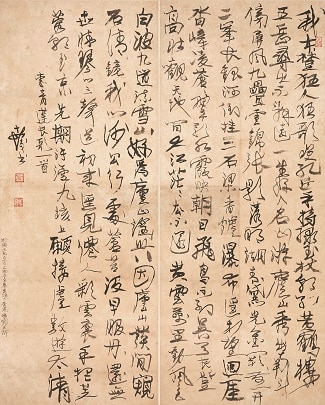 我本楚狂人鳳歌笑孔丘手持綠玉杖朝別黃鶴樓
五岳尋山不辭遠一生好入名山遊廬山秀出南斗傍
屏風九疊雲錦張影落明湖青黛光金闕前開
二峯長銀河倒挂三石梁香爐瀑布遙相望回崖
沓嶂凌蒼蒼翠影紅霞映朝日鳥飛不到吳天長登
高壯觀天地間大江茫茫去不還黃雲萬里動風色
白波九道流雪山好為廬山謠興因廬山發閒窺
石清鏡我心謝公行處蒼苔沒早服還丹無
世情琴心三疊道初成遙見仙人彩雲裏手把芙
蓉朝玉京先期汗漫九垓上願接盧敖遊太清
書青蓮 一首